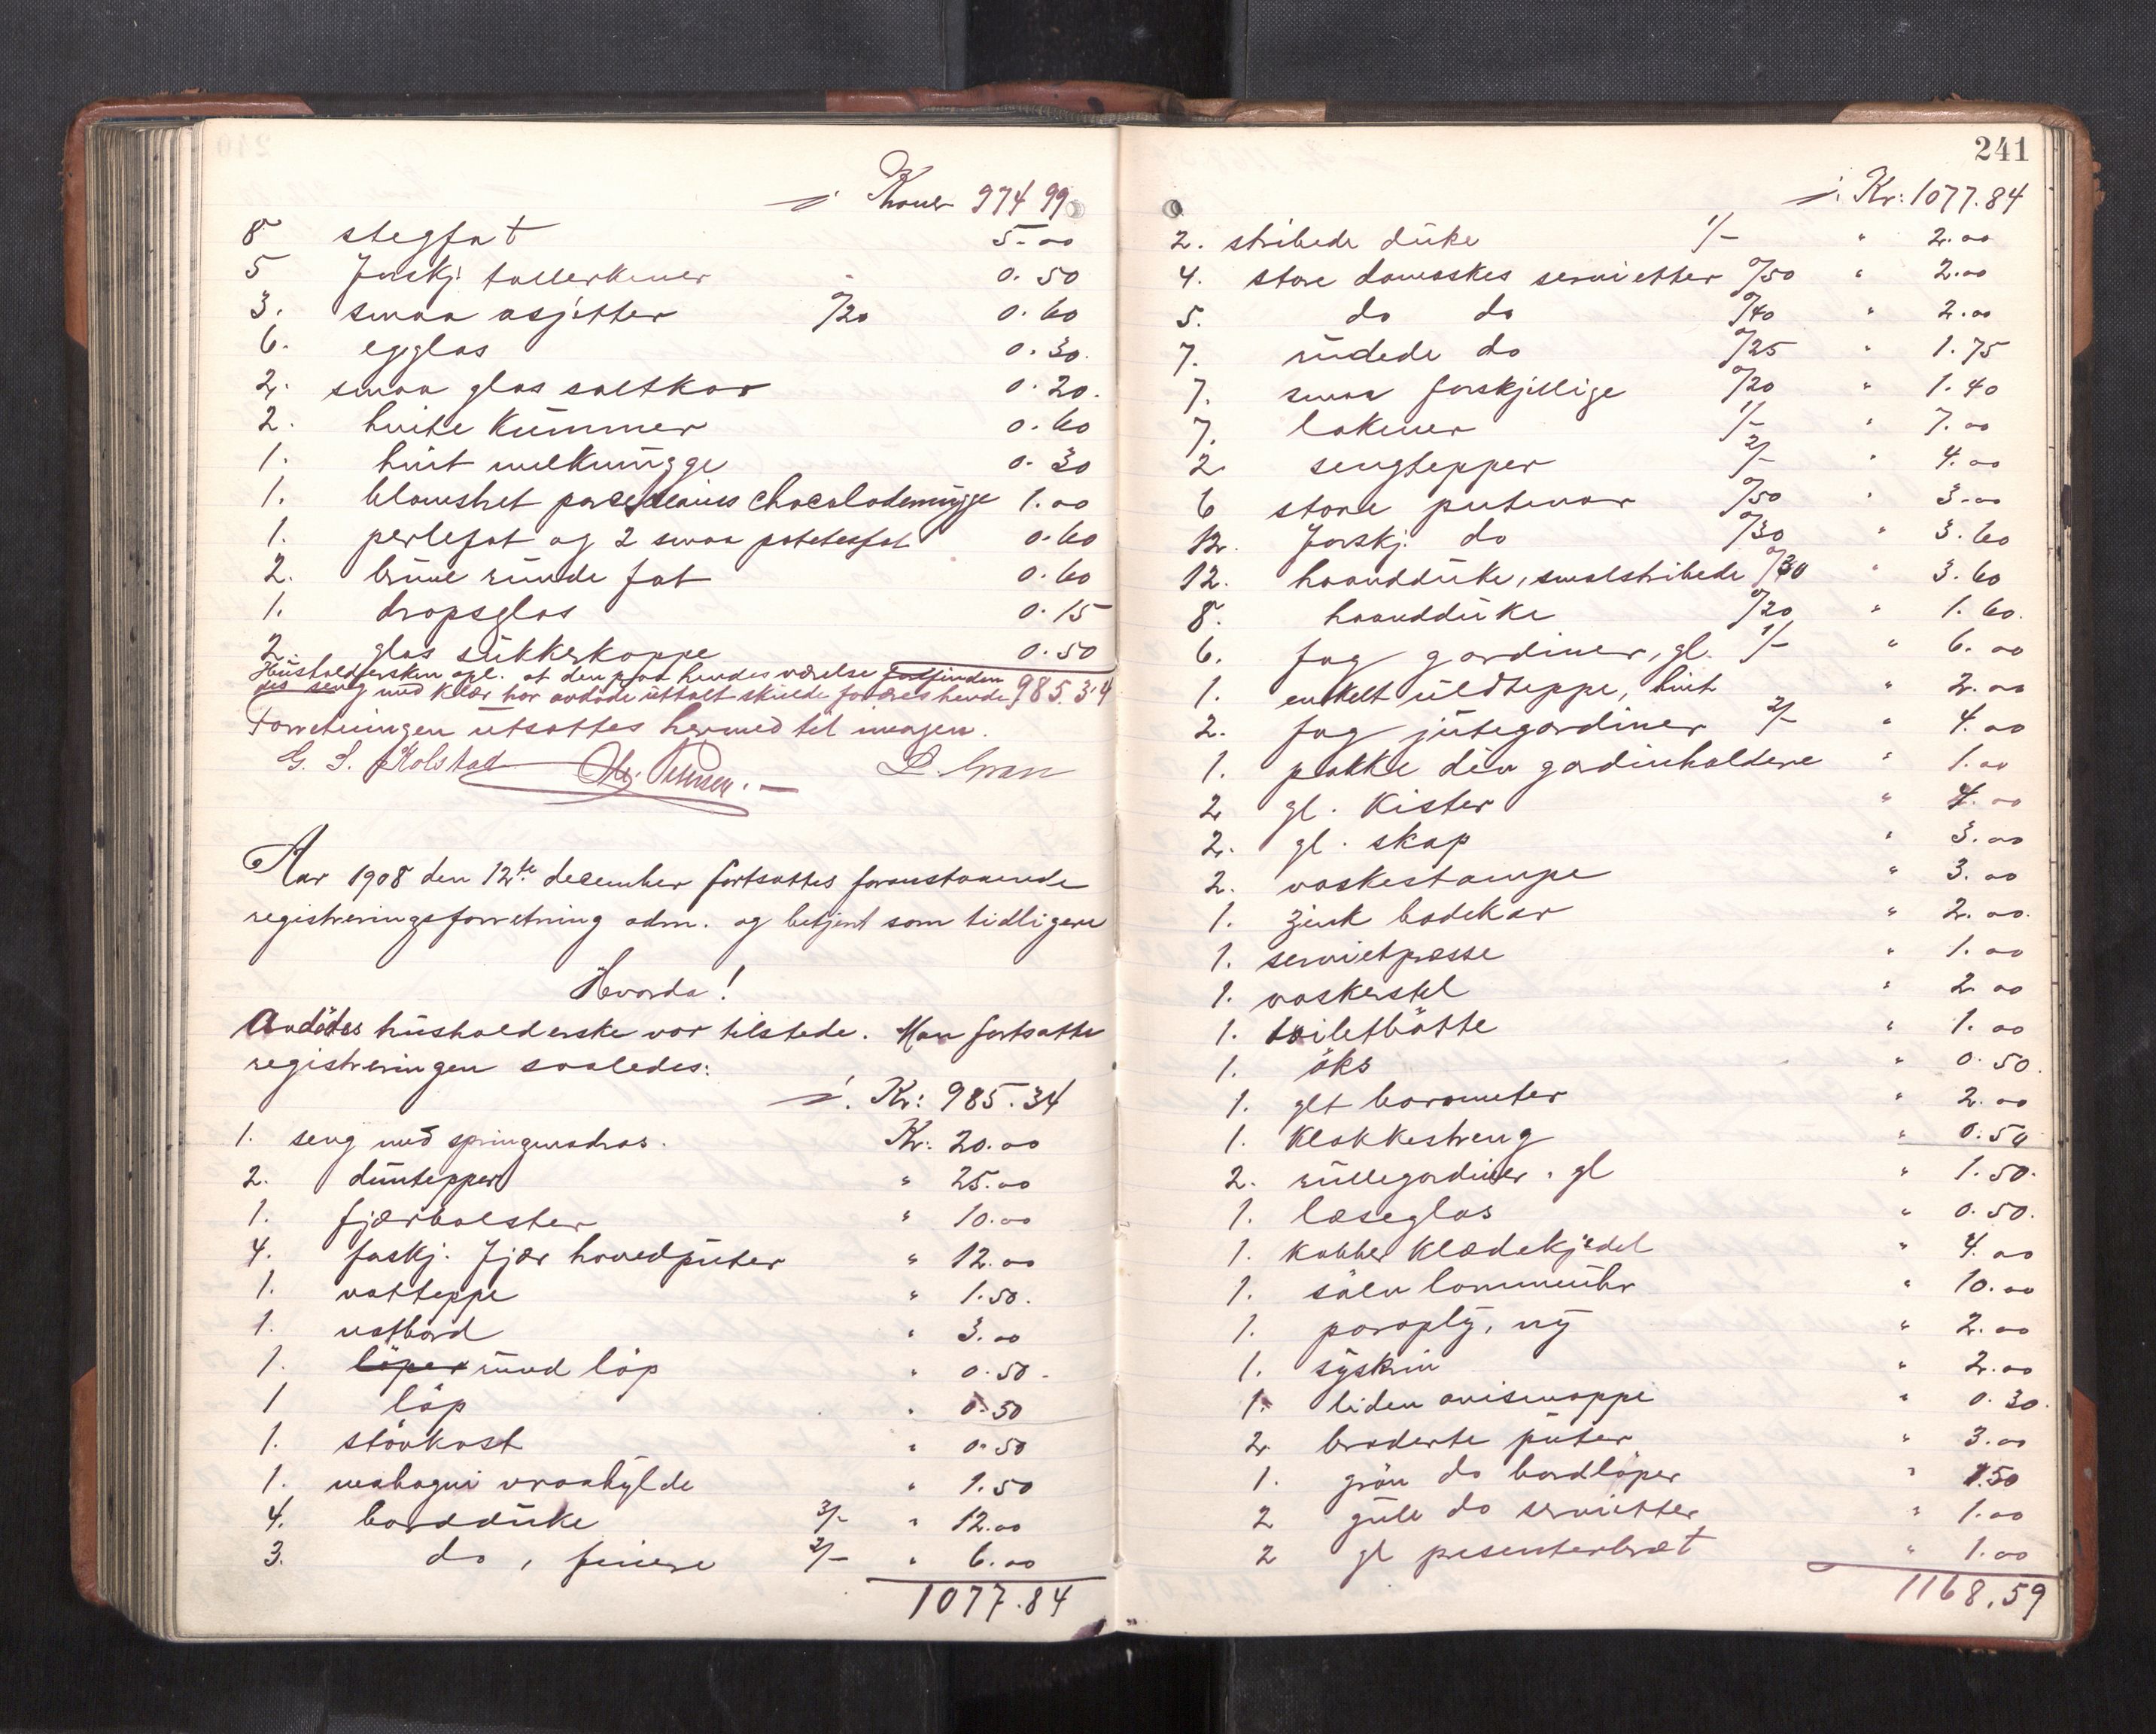 ÷ Kroner 974 99
8 stegfat 5.00
5 forskj. tallerkener 0.50
3. smaa asjetter 0/20 0.60
6. egglas 0.30.
2. smaa glas saltkar 0.20.
2. hvite Kummer 0.60
1. hvit melkmugge 0.30
1. blomstret porcelains chocolademugge 1.00
1. perlefat og 2 smaa potetesfat 0.60
2. brune runde fat 0.60
1. dropsglas 0.15
2. glas sukkerkoppe 0.50
Husholdersken opl. at den paa hendes værelse befinden
des seng med klær har avdøde uttalt skulde foræres hende 985.34
Forretningen utsattes hermed til imorgen.
G. S. Kolstad L. Gran
Aar 1908 den 12te december fortsattes foranstaaende
registreringsforretning adm. og betjent som tidligere
Hvorda!
Avdødes husholderske var tilstede. Man fortsatte
registreringen saaledes:
÷. Kr: 985.34
1. seng med springmadras. Kr: 20.00
2. duntepper " 25.00
1. fjærbolster " 10.00
4. forskj. fjær hovedputer " 12.00
1. vatteppe " 1.50.
1. natbord " 3.00
1. löper rund löp " 0.50.
1 löp " 0.50
1. stövkost " 0.50
1. mahogni vraahylde " 1.50
4. bordduke 3/- " 12.00
3. do, finere 2/- " 6.00
1077.84
241
÷. Kr: 1077.84
2. stribede duke 1/- " 2.00
4. store damaskes servietter 0/50 " 2.00
5. do do 0/40 " 2.00
7. rudede do 0/25 " 1.75
7. smaa forskjellige 0/20 " 1.40
7. lakener 1/- " 7.00
2. sengtepper 2/- " 4.00
6 store putevar 0/50 " 3.00
12. forskj. do 0/30 " 3.60
12. haandduke, smalstribede 0/30 " 3.60
8. haandduke 0/20 " 1.60.
6. fag gardiner, gl. 1/- " 6.00
1. enkelt uldteppe, hvit " 2.00
2. fag jutegardiner 2/- " 4.00
1. pakke div gardinholdere " 1.00
2 gl. Kister " 4.00
2. gl. skap " 3.00
2. vaskestampe " 3.00
1. zink badekar " 2.00.
1. servietpresse " 1.00
1. vaskerstel " 2.00
1. toiletbötte " 1.00
1. öks " 0.50.
1. glt barometer " 2.00
1. Klokkestreng " 0.50
2. rullegardiner, gl " 1.50.
1. læseglas " 0.50.
1. Kobber Klædekjedel " 4.00
1. sölv lommeuhr " 10.00
1. paraply, ny " 2.00
1. syskrin " 2.00
1. liden avismappe " 0.30.
2. broderte puter " 3.00
1. grön do bordlöper " 1.50
2 gule do servietter " 1.00
2 gl presenterbræt " 1.00
1168.59